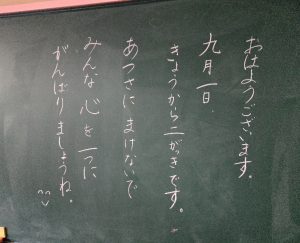 おはようございます。
九月一日.
きょうから二がっきです。
あつさに まけないで
みんな 心を 一つに
がんばりましょうね。